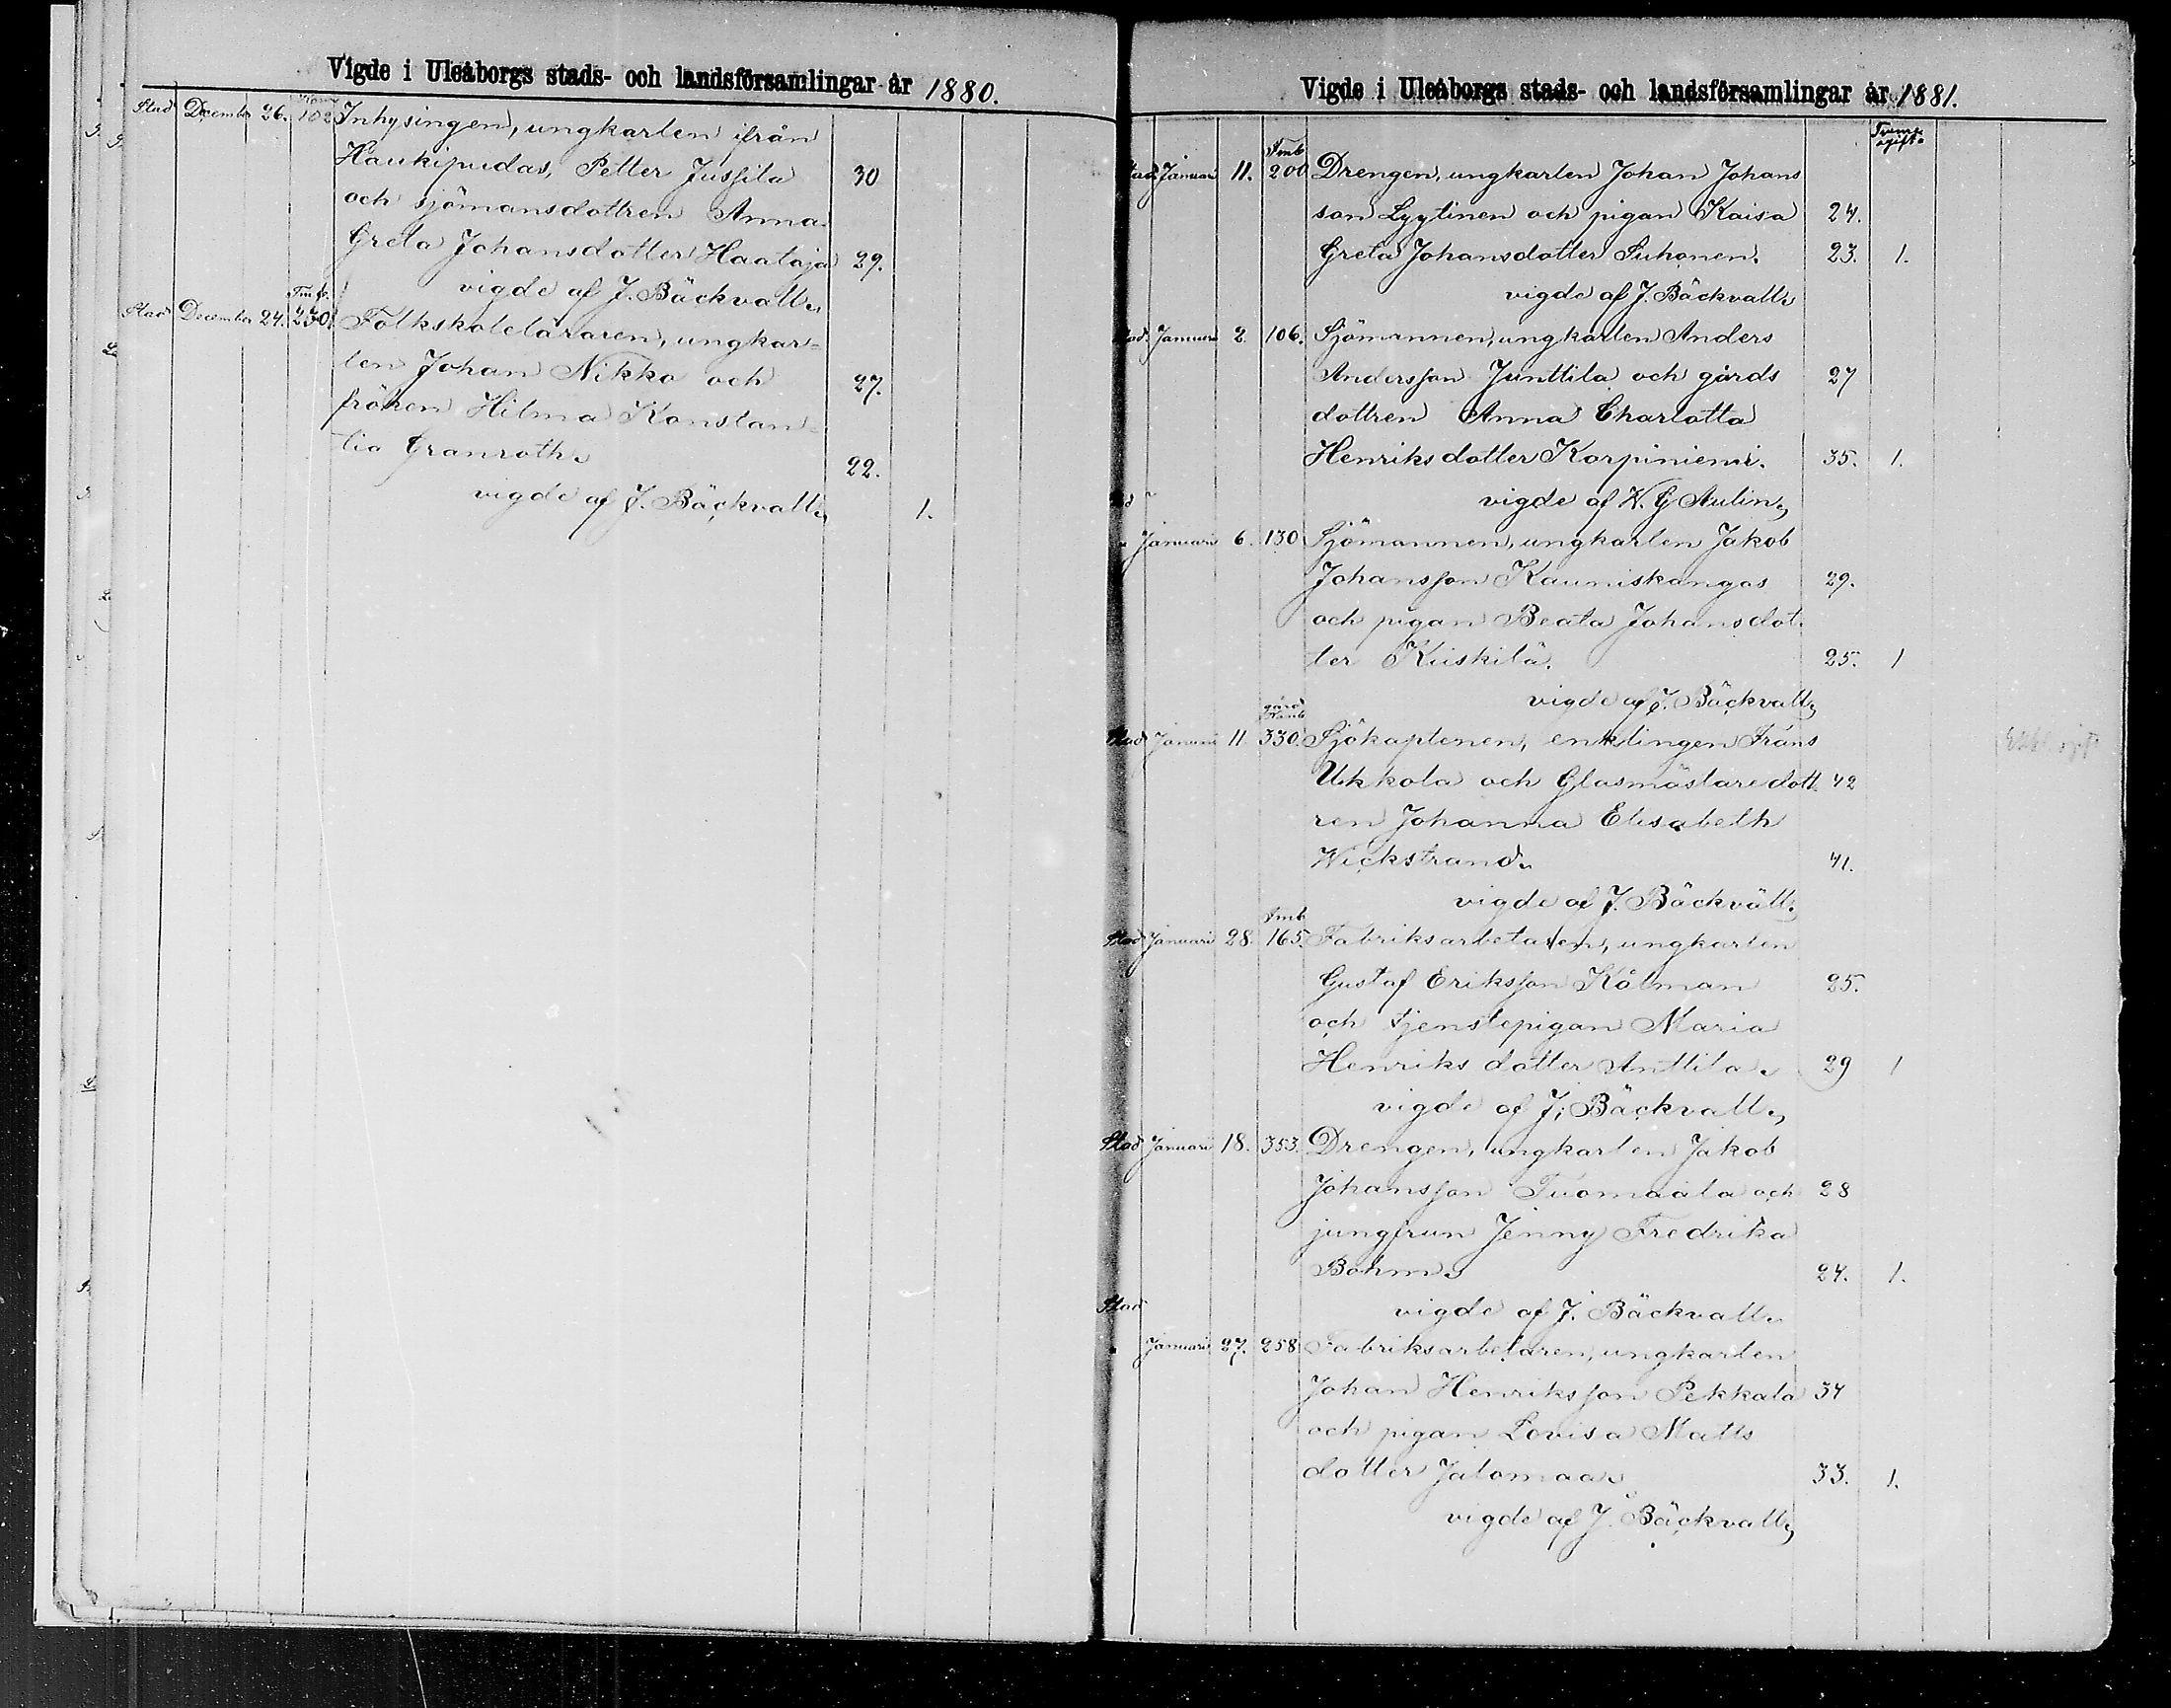 Vigde i Uleåborgs stads- och landsförsamlingar år 1880.
Stad December 26. 102 Inhysingen, ungkarlen ifrån
Haukipudas, Petter Jussila 30
och sjömansdottren Anna
Greta Johansdotter Haataja 29.
vigde af J. Bäckvall.
Tmb.
Stad December 24. 230. Folkskoleläraren, ungkar-
len Johan Nikko och 27.
fröken Hilma Konstan-
tia Granroth. 22.
vigde af J. Bäckvall. 1.
Vigde i Uleåborgs stads- och landsförsamlingar år 1881.
Tmb
Stad Januari 11. 200 Drengen, ungkarlen Johan Johans
son Lyytinen och pigan Kaisa 24.
Greta Johansdotter Suhonen. 23. 1.
vigde af J. Bäckvall.
Stad Januari 2. 106. Sjömannen, ungkarlen Anders
Andersson Junttila och gårds 27
dottren Anna Charlotta
Henriksdotter Korpiniemi. 35. 1.
vigde af W. G Aulin.
Januari 6. 130 Sjömannen, ungkarlen Jakob
Johansson Kauniskangas 29.
och pigan Beata Johansdot
ter Kiiskilä. 25. 1
vigde af J. Bäckvall.
gård
Stad Januari 11 330. Sjökaptenen, enklingen Frans
Ukkola och Glasmästaredott 42
ren Johanna Elisabeth
Wickstrand. 41.
vigde af J. Bäckvall.
Tmb
Stad Januari 28. 165. Fabriksarbetaren, ungkarlen
Gustaf Eriksson Kålman 25.
och tjenstepigan Maria
Henriksdotter Anttila. 29 1
vigde af J. Bäckvall.
Stad Januari 18. 353. Drengen, ungkarlen Jakob
Johansson Tuomaala och 28
jungfrun Jenny Fredrika
Bohm. 24. 1.
Stad vigde af J. Bäckvall.
Januari 27. 258 Fabriksarbetaren, ungkarlen
Johan Henriksson Pekkala 34
och pigan Lovisa Matts
dotter Jalomaa. 33. 1.
vigde af J. Bäckvall.